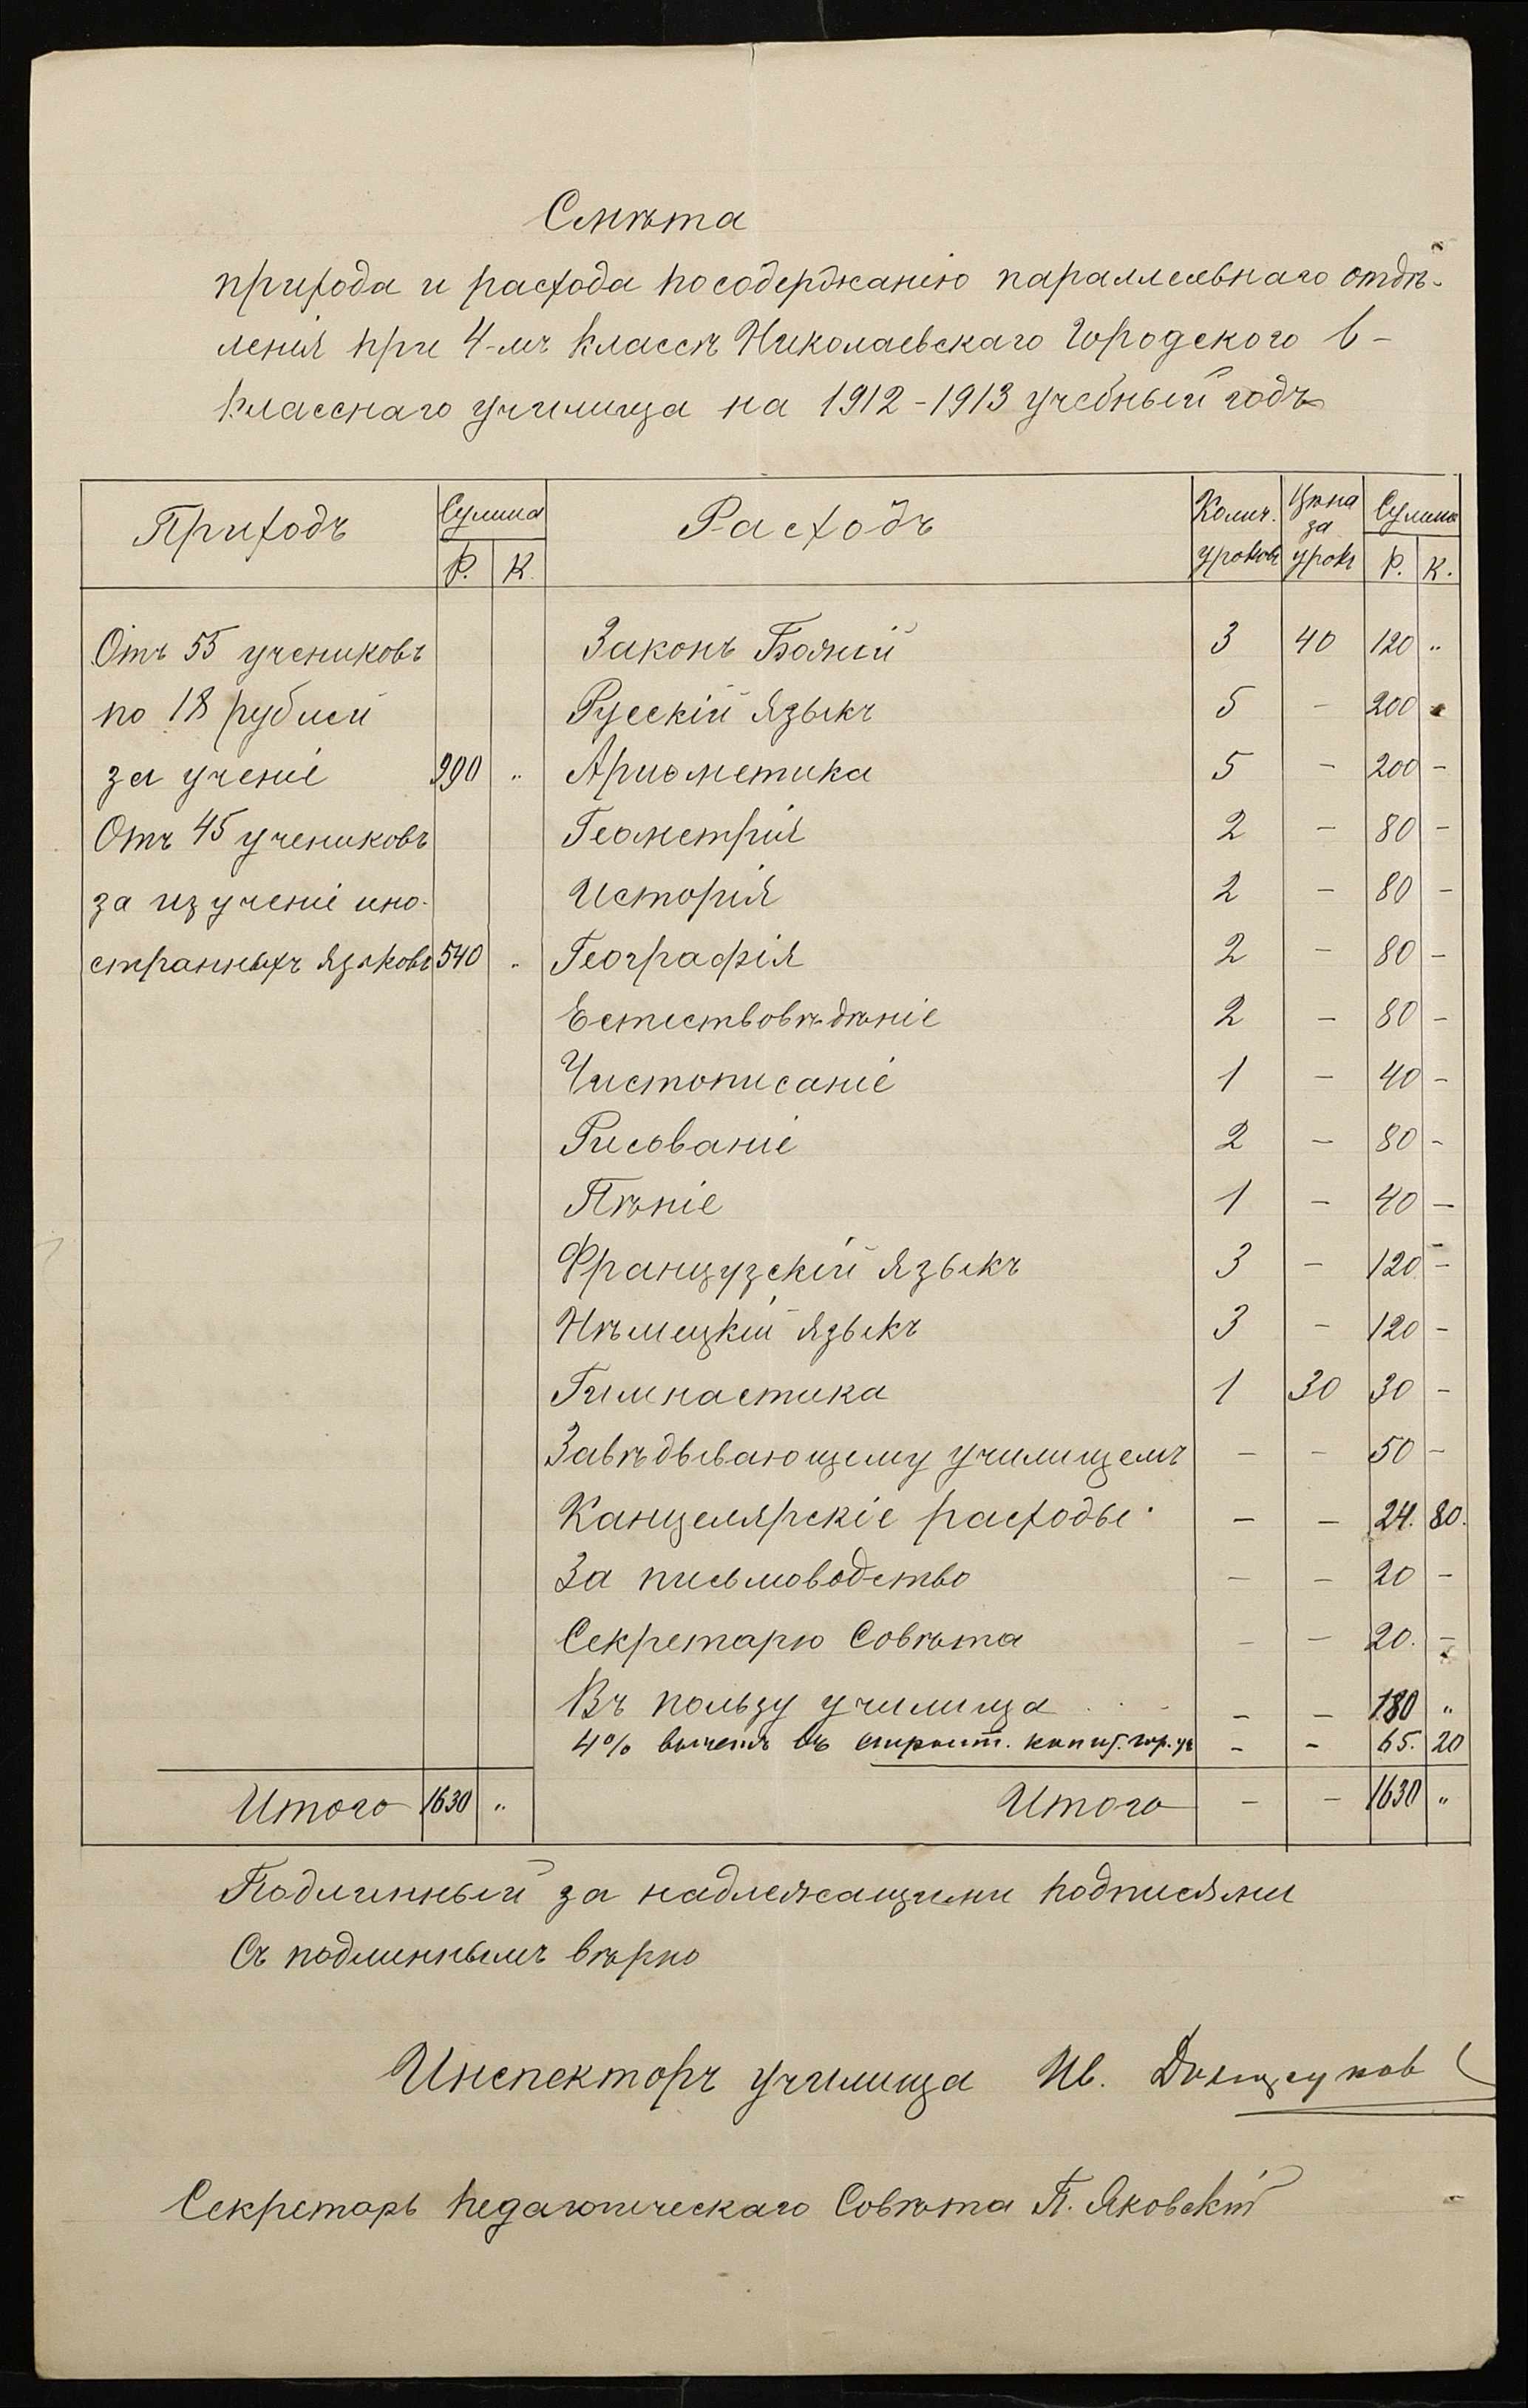 Смѣта
прихода и расхода по содержанію параллельнаго отдѣ-
ленія при 4-мъ классѣ Николаевскаго Городского 6-
класснаго училища на 1912-1913 учебный годъ
Приходъ Сумма Расходъ Колич. уроковъ Цѣна за урокъ Сумма
Р. К. Р. К.
Отъ 55 учениковъ Законъ Божій 3 40 120 "
по 18 рублей Русскій языкъ 5 - 200 -
за ученіе 990 " Ариѳметика 5 - 200 -
Отъ 45 учениковъ Геометрія 2 - 80 -
за изученіе ино- Исторія 2 - 80 -
странныхъ языковъ 540 " Географія 2 - 80 -
Естествовѣдѣніе 2 - 80 -
Чистописаніе 1 - 40 -
Рисованіе 2 - 80 -
Пѣніе 1 - 40 -
Французскій языкъ 3 - 120 -
Нѣмецкій языкъ 3 - 120 -
Гимнастика 1 30 30 -
Завѣдывающему училищемъ - - 50 -
Канцелярскіе расходы - - 24. 80.
За письмоводство - - 20 -
Секретарю Совѣта - - 20. -
Въ пользу училища - - 180 "
4% вычетъ въ строит. капит. гор. уч - - 65. 20
Итого 1630 " Итого - - 1630 "
Подлинный за надлежащими подписями
Съ подлиннымъ вѣрно
Инспекторъ училища Ив.
Секретарь педагогическаго Совѣта П. Яковскій